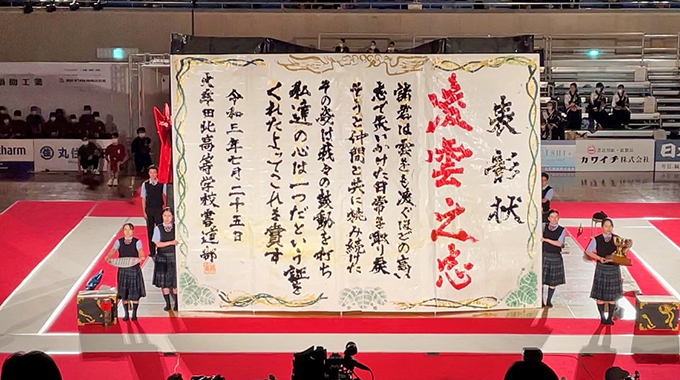 表彰状
凌雲之志
諸君は雲をも凌ぐほどの高い
志で失いかけた日常を取り戻
そうと仲間と共に挑み続けた
その姿は我々の鼓動を打ち
私達の心は一つだという証を
くれたよってこれを賞す
令和三年七月二十五日
大牟田北高等学校書道部
harm
丸住
カワイチ株式会社